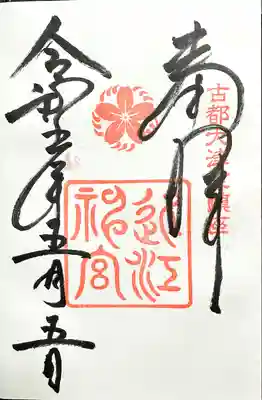 奉拝
古都大津鎮座
近江
神宮
令和五年五月五日